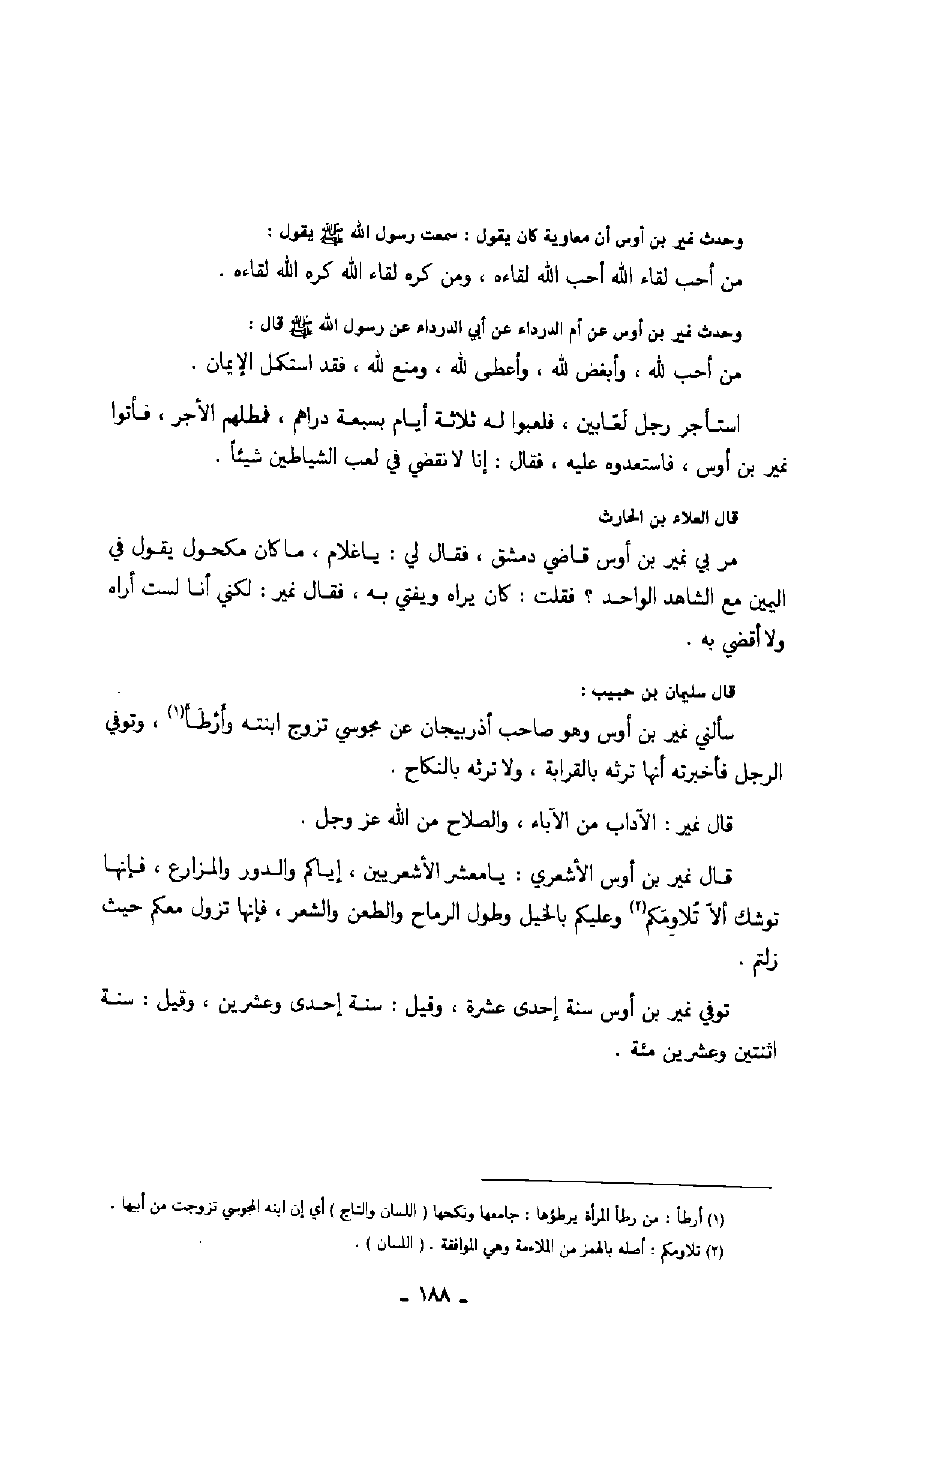 وحدث نمير بن أوس أن معاوية كان يقول : سمعت رسول الله ﷺ يقول :
من أحب لقاء الله أحب الله لقاءه ، ومن كره لقاء الله كره الله لقاءه .
وحدث نمير بن أوس عن أم الدرداء عن أبي الدرداء عن رسول الله ﷺ قال :
من أحب لله ، وأبغض لله ، وأعطى لله ، ومنع لله ، فقد استكمل الإيمان .
استأجر رجل لعّابين ، فلعبوا له ثلاثة أيام بسبعة دراهم ، فمطلهم الأجر ، فأتوا
نمير بن أوس ، فاستعدوه عليه ، فقال : إنا لا نقضي في لعب الشياطين شيئاً .
قال العلاء بن الحارث
مر بي نمير بن أوس قاضي دمشق ، فقال لي : ياغلام ، ما كان مكحول يقول في
اليمين مع الشاهد الواحد ؟ فقلت : كان يراه ويفتي به ، فقال نمير : لكني أنا لست أراه
ولا أقضي به .
قال سليمان بن حبيب :
سألني نمير بن أوس وهو صاحب أذربيجان عن مجوسي تزوج ابنته وأرْطَأ(١) ، وتوفي
الرجل فأخبرته أنها ترثه بالقرابة ، ولا ترثه بالنكاح .
قال نمير : الآداب من الآباء ، والصلاح من الله عز وجل .
قال نمير بن أوس الأشعري : يامعشر الأشعريين ، إياكم والدور والمزارع ، فإنها
توشك ألاّ تُلاومَكم(٢) وعليكم بالخيل وطول الرماح والطعن والشعر ، فإنها تزول معكم حيث
زلتم .
توفي نمير بن أوس سنة إحدى عشرة ، وقيل : سنة إحدى وعشرين ، وقيل : سنة
اثنتين وعشرين مئة .
(١) أرطأ : من رطأ المرأة يرطؤها : جامعها ونكحها ( اللسان والتاج ) أي إن ابنه المجوسي تزوجت من أبيها .
(٢) تلاومكم : أصله بالهمز من الملاءمة وهي الموافقة . ( اللسان ) .
ـ ١٨٨ ـ